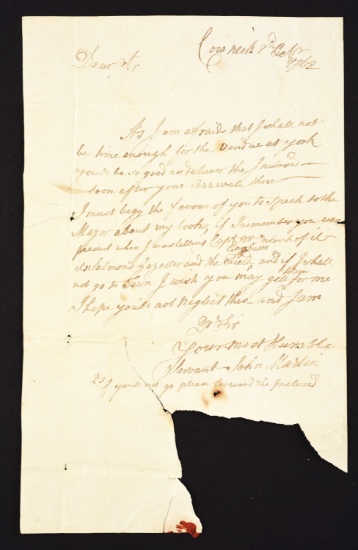 Cowneck 8th Octbr
1762
Dear Sr
As I am afraid that I shall not
be time enough for the Vendue at York
you'll be so good as deliver the Inclosed
soon after your Arrival there
I must begg the favour of you to speak to the
Major about my books, if I remember you was
present when I was telling Capt of it
Salmons Gazetteer and the and if I shall
not go to Town I wish you may gett them for me
I hope you'll not neglect this and I am
Dr Sir
Your most Humble
Servant John Martin
PS if you do not go please forward the Inclosed